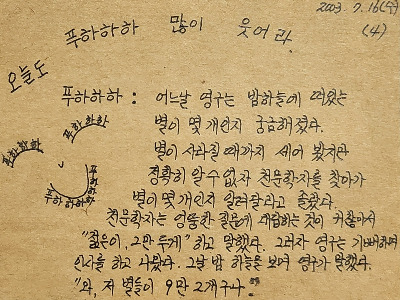 2003. 7. 16(수)
(4)
오늘도 푸하하하 많이 웃어라.
푸하하하 : 어느날 영구는 밤하늘에 떠있는
별이 몇 개인지 궁금해졌다.
별이 사라질 때까지 세어 봤지만
정확히 알 수 없자 천문학자를 찾아가
별이 몇 개인지 알려달라고 졸랐다.
천문학자는 엉뚱한 질문에 대답하는 것이 귀찮아서
"젊은이, 그만 두게" 하고 말했다. 그러자 영구는 기뻐하며
인사를 하고 나왔다. 그날 밤 하늘을 보며 영구가 말했다.
"와, 저 별들이 9만 2개구나."
푸하하하
푸하하하
푸하하하
푸하하하